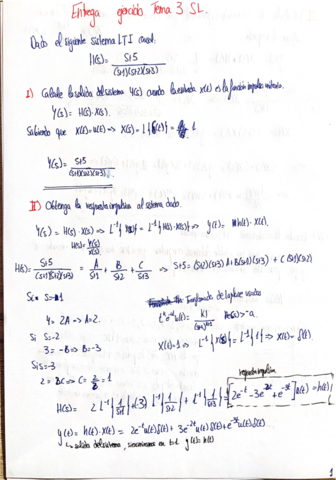 Entrega ejercicio Tema 3 SL.
Dado el siguiente sistema LTI causal:
H(s) = S+5 / (S+1)(S+2)(S+3)
I) Calcule la salida del sistema Y(s) cuando la entrada x(t) es la función impulso unitario.
Y(s) = H(s)·X(s).
Sabiendo que X(s) = L{ (t)} = 1
Y(s) = S+5 / (S+1)(S+2)(S+3).
II) Obtenga la respuesta impulsiva al sistema dado.
Y(s) = H(s)·X(s) => L⁻¹{Y(s)} = L⁻¹{H(s)·X(s)} => y(t) = h(t)·x(t).
H(s) = Y(s)/X(s)
H(s) = S+5 / (S+1)(S+2)(S+3) = A/S+1 + B/S+2 + C/S+3 => S+5 = (S+2)(S+3)A + B(S+1)(S+3) + C(S+1)(S+2)
Si S=-1
4 = 2A -> A=2.
Si S=-2
3 = -B => B=-3
Si S=-3
2 = 2C => C = 2/2 = 1
Transformada de Laplace
X(s)=1 => L⁻¹{X(s)} = L⁻¹{1} => x(t) = δ(t).
respuesta impulsiva
H(s) = 2 L⁻¹{1/S+1} + (-3) L⁻¹{1/S+2} + L⁻¹{1/S+3} = [2e^-t - 3e^-2t + e^-3t] u(t) = h(t)
y(t) = h(t)·x(t) = 2e^-t u(t) δ(t) + 3e^-2t u(t) δ(t) + e^-3t u(t) δ(t).
salida del sistema, y(t) = h(t)
1